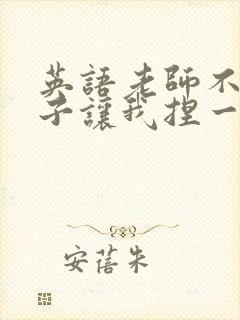 英語老師不
子讓我捏一
安蓓朱